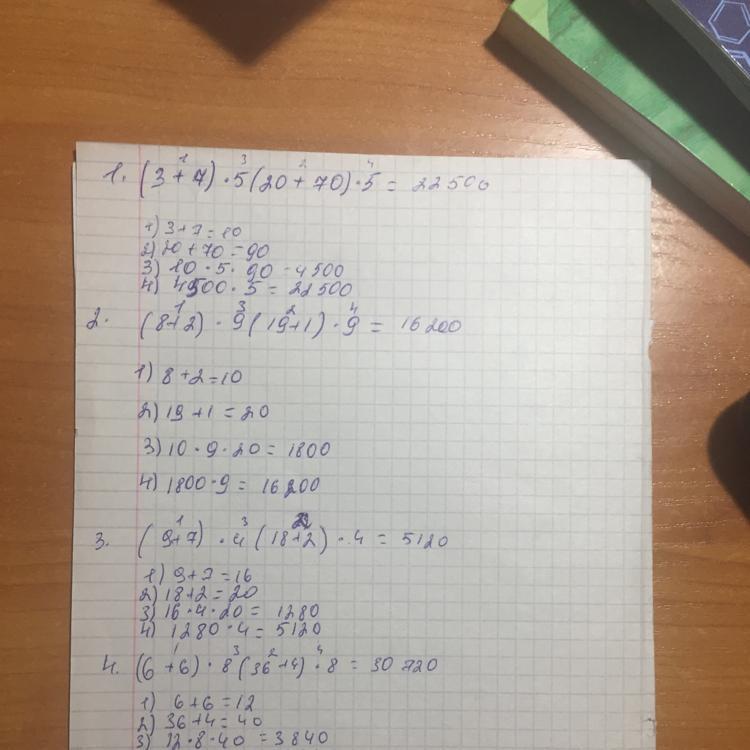 1. (3+7)·5(20+70)·5 = 22500
1) 3+7=10
2) 20+70=90
3) 10·5·90=4500
4) 4500·5=22500
2. (8+2)·9(19+1)·9 = 16200
1) 8+2=10
2) 19+1=20
3) 10·9·20=1800
4) 1800·9=16200
3. (9+7)·4(18+2)·4 = 5120
1) 9+7=16
2) 18+2=20
3) 16·4·20=1280
4) 1280·4=5120
4. (6+6)·8(36+4)·8 = 30720
1) 6+6=12
2) 36+4=40
3) 12·8·40=3840